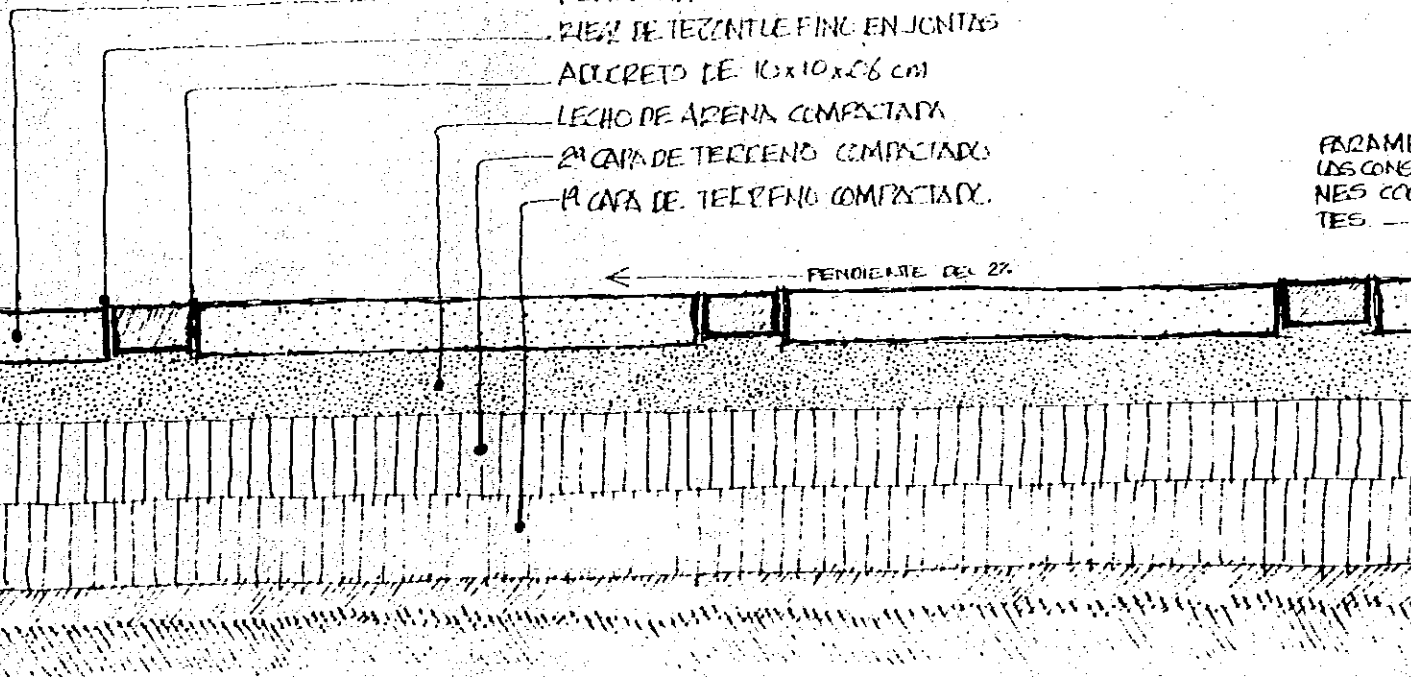 RIEGO DE TEZONTLE FINO EN JUNTAS
ADOCRETO DE 10x10x06 cm
LECHO DE ARENA COMPACTADA
2ª CAPA DE TERRENO COMPACTADO
1ª CAPA DE TERRENO COMPACTADO.
PARAME
LAS CONS
NES CO
TES.
PENDIENTE DEL 2%